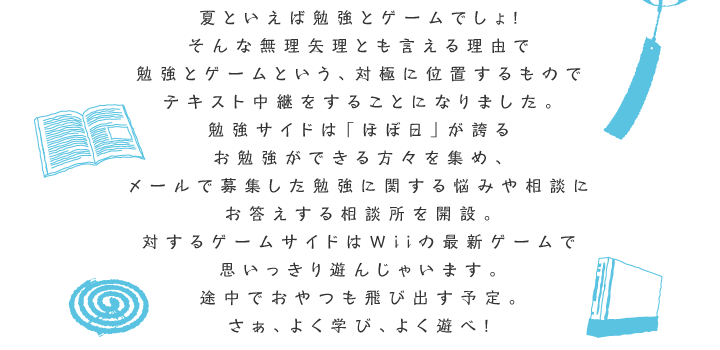 夏といえば勉強とゲームでしょ!
そんな無理矢理とも言える理由で
勉強とゲームという、対極に位置するもので
テキスト中継をすることになりました。
勉強サイドは「ほぼ日」が誇る
お勉強ができる方々を集め、
メールで募集した勉強に関する悩みや相談に
お答えする相談所を開設。
対するゲームサイドはWiiの最新ゲームで
思いっきり遊んじゃいます。
途中でおやつも飛び出す予定。
さぁ、よく学び、よく遊べ!